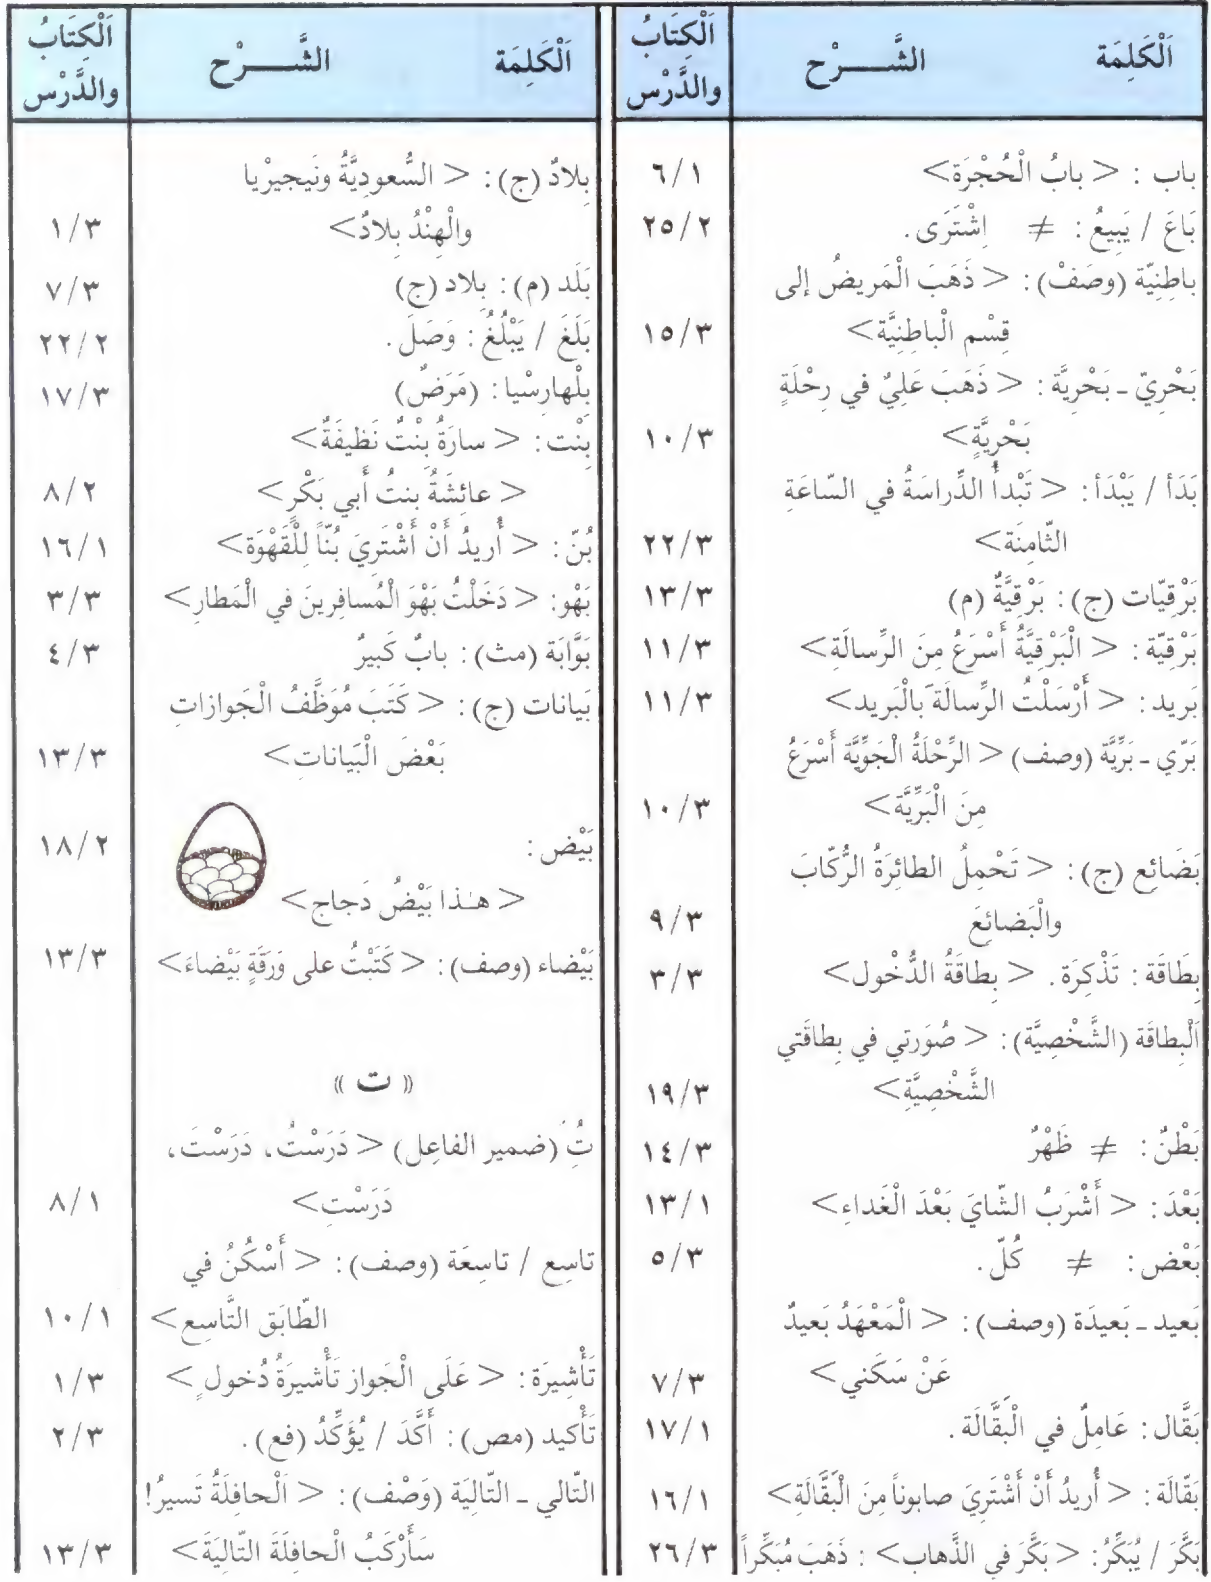 اَلْكَلِمَة الشَّـــرْح اَلْكِتَابُ والدَّرْس
باب : < بابُ الْحُجْرَة> ٦/١
بَاعَ / يَبِيعُ : ≠ اِشْتَرَى . ٢٥/٢
باطِنِيّة (وصَفْ) : < ذَهَبَ الْمَريضُ إلى
قِسْم الْباطِنِيَّة> ١٥/٣
بَحْرِيّ ـ بَحْرِيَّة : < ذَهَبَ عَلِيٌ في رِحْلَةٍ
بَحْرِيَّةٍ> ١٠/٣
بَدَأ / يَبْدَأ : < تَبْدأُ الدِّراسَةُ في السّاعَةِ
الثّامِنَة> ٢٢/٣
بَرْقِيّات (ج) : بَرْقِيَّةٌ (م) ١٣/٣
بَرْقِيّة : < الْبَرْقِيَّةُ أَسْرَعُ مِنَ الرِّسالَةِ> ١١/٣
بَريد : < أَرْسَلْتُ الرِّسالَةَ بالْبَريد> ١١/٣
بَرّي ـ بَرِّيَّة (وصف) < الرِّحْلَةُ الْجَوِّيَّة أَسْرَعُ
مِنَ الْبَرِّيَّة> ١٠/٣
بَضَائِع (ج) : < تَحْمِلُ الطائِرَةُ الرُّكّابَ
والْبَضائِعَ ٩/٣
بِطَاقَة : تَذْكِرَة . < بِطاقَةُ الدُّخْول> ٣/٣
اَلْبِطاقَة (الشَّخْصِيَّة) : < صُوَرتي في بِطاقَتي
الشَّخْصِيَّةِ> ١٩/٣
بَطْنٌ : ≠ ظَهْرٌ ١٤/٣
بَعْدَ : < أَشْرَبُ الشّايَ بَعْدَ الْغَداءِ> ١٣/١
بَعْض : ≠ كُلّ . ٥/٣
بَعيد ـ بَعيدَة (وصف) : < الْمَعْهَدُ بَعيدٌ
عَنْ سَكَني> ٧/٣
بَقَّال : عَامِلٌ في الْبَقَّالَة . ١٧/١
بَقّالَة : < أُريدُ أَنْ أَشْتَرِيَ صابوناً مِنَ الْبَقَّالَةِ> ١٦/١
بَكَّرَ / يُبَكِّرُ : < بَكَّرَ في الذَّهاب> : ذَهَبَ مُبَكِّراً ٢٦/٣
اَلْكَلِمَة الشَّـــرْح اَلْكِتَابُ والدَّرْس
بِلادٌ (ج) : < السُّعودِيَّةُ ونَيجيرْيا
والْهِنْدُ بِلادٌ> ١/٣
بَلَد (م) : بِلاد (ج) ٧/٣
بَلَغَ / يَبْلُغُ : وَصَلَ . ٢٢/٢
بِلْهارِسْيا : (مَرَضٌ) ١٧/٣
بِنْت : < سارَةُ بِنْتٌ نَظيفَةٌ>
< عائِشَةُ بِنتُ أَبي بَكْرٍ> ٨/٢
بُنّ : < أُريدُ أَنْ أَشْتَرِيَ بُنّاً لِلْقَهْوَة> ١٦/١
بَهْو: < دَخَلْتُ بَهْوَ الْمُسافِرينَ في الْمَطارِ> ٣/٣
بَوَّابَة (مث) : بابٌ كَبيرٌ ٤/٣
بَيانات (ج) : < كَتَبَ مُوَظَّفُ الْجَوازاتِ
بَعْضَ الْبَيانات> ١٣/٣
بَيْض : ١٨/٢
< هـٰذا بَيْضُ دَجاج>
بَيْضاء (وصف) : < كَتَبْتُ على وَرَقَةٍ بَيْضاءَ> ١٣/٣
« ت »
تُ (ضمير الفاعِل) < دَرَسْتُ ، دَرَسْتَ ،
دَرَسْتِ> ٨/١
تاسِع / تاسِعَة (وصف) : < أَسْكُنُ في
الطّابَق التَّاسِع> ١٠/١
تَأْشِيرَة : < عَلَى الْجَواز تَأْشيرَةُ دُخول ٍ> ١/٣
تَأْكيد (مص) : أَكَّدَ / يُؤَكِّدُ (فع) . ٢/٣
التّالي ـ التّالِيَة (وَصْف) : < اَلْحافِلَةُ تَسيرُ!
سَأَرْكَبُ الْحافِلَةَ التّالِيَةَ> ١٣/٣